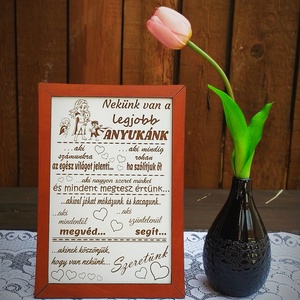 Nekünk van a
legjobb
ANYUKÁNK
...aki számunkra az egész világot jelenti...
...aki mindig rohan ha szólítjuk őt
...aki nagyon szeret minket
és mindent megtesz értünk...
...akivel jókat mókázunk és kacagunk...
...aki mindentől megvéd...
...aki szüntelenül segít...
...akinek köszönjük,
hogy van nekünk...
Szeretünk